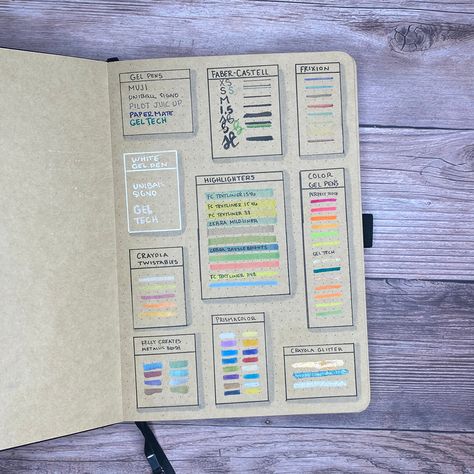 GEL PENS
MUJI
UNIBALL SIGNO
PILOT JUICE UP
PAPERMATE
GELTECH
FABER-CASTELL
XS
S S
M
1.5
FRIXION
WHITE
GEL PEN
UNIBALL
SIGNO
GEL
TECH
HIGHLIGHTERS
FC TEXTLINER 1546
FC TEXTLINER 1546
FC TEXTLINER 38
ZEBRA MILDLINER
ZEBRA DAZZLE BRIGHTS
FC TEXTLINER
COLOR
GEL PENS
GELTECH
CRAYOLA
TWISTABLES
KELLY CREATES
METALLIC BRUSH
PRISMACOLOR
CRAYOLA GLITTER